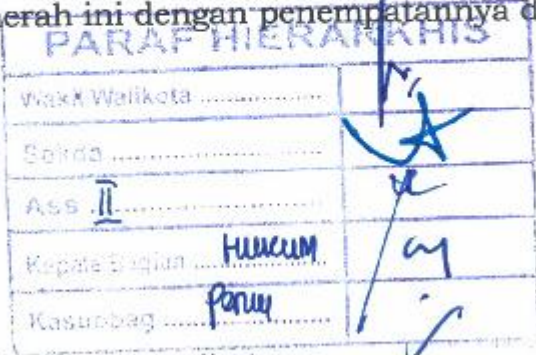 erah ini dengan penempatannya d
PARAF HIERARKHIS
Wakil Walikota ....................
Sekda ....................
Ass II ....................
Kepala Bagian .......... HUKUM
Kasubbag ..........